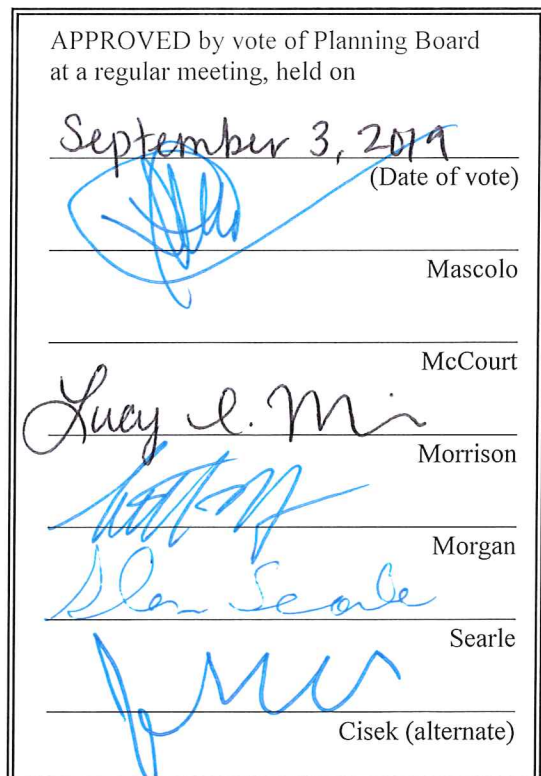 APPROVED by vote of Planning Board
at a regular meeting, held on
September 3, 2019
(Date of vote)
Mascolo
McCourt
Lucy
Morrison
Morgan
Searle
Searle
Cisek (alternate)